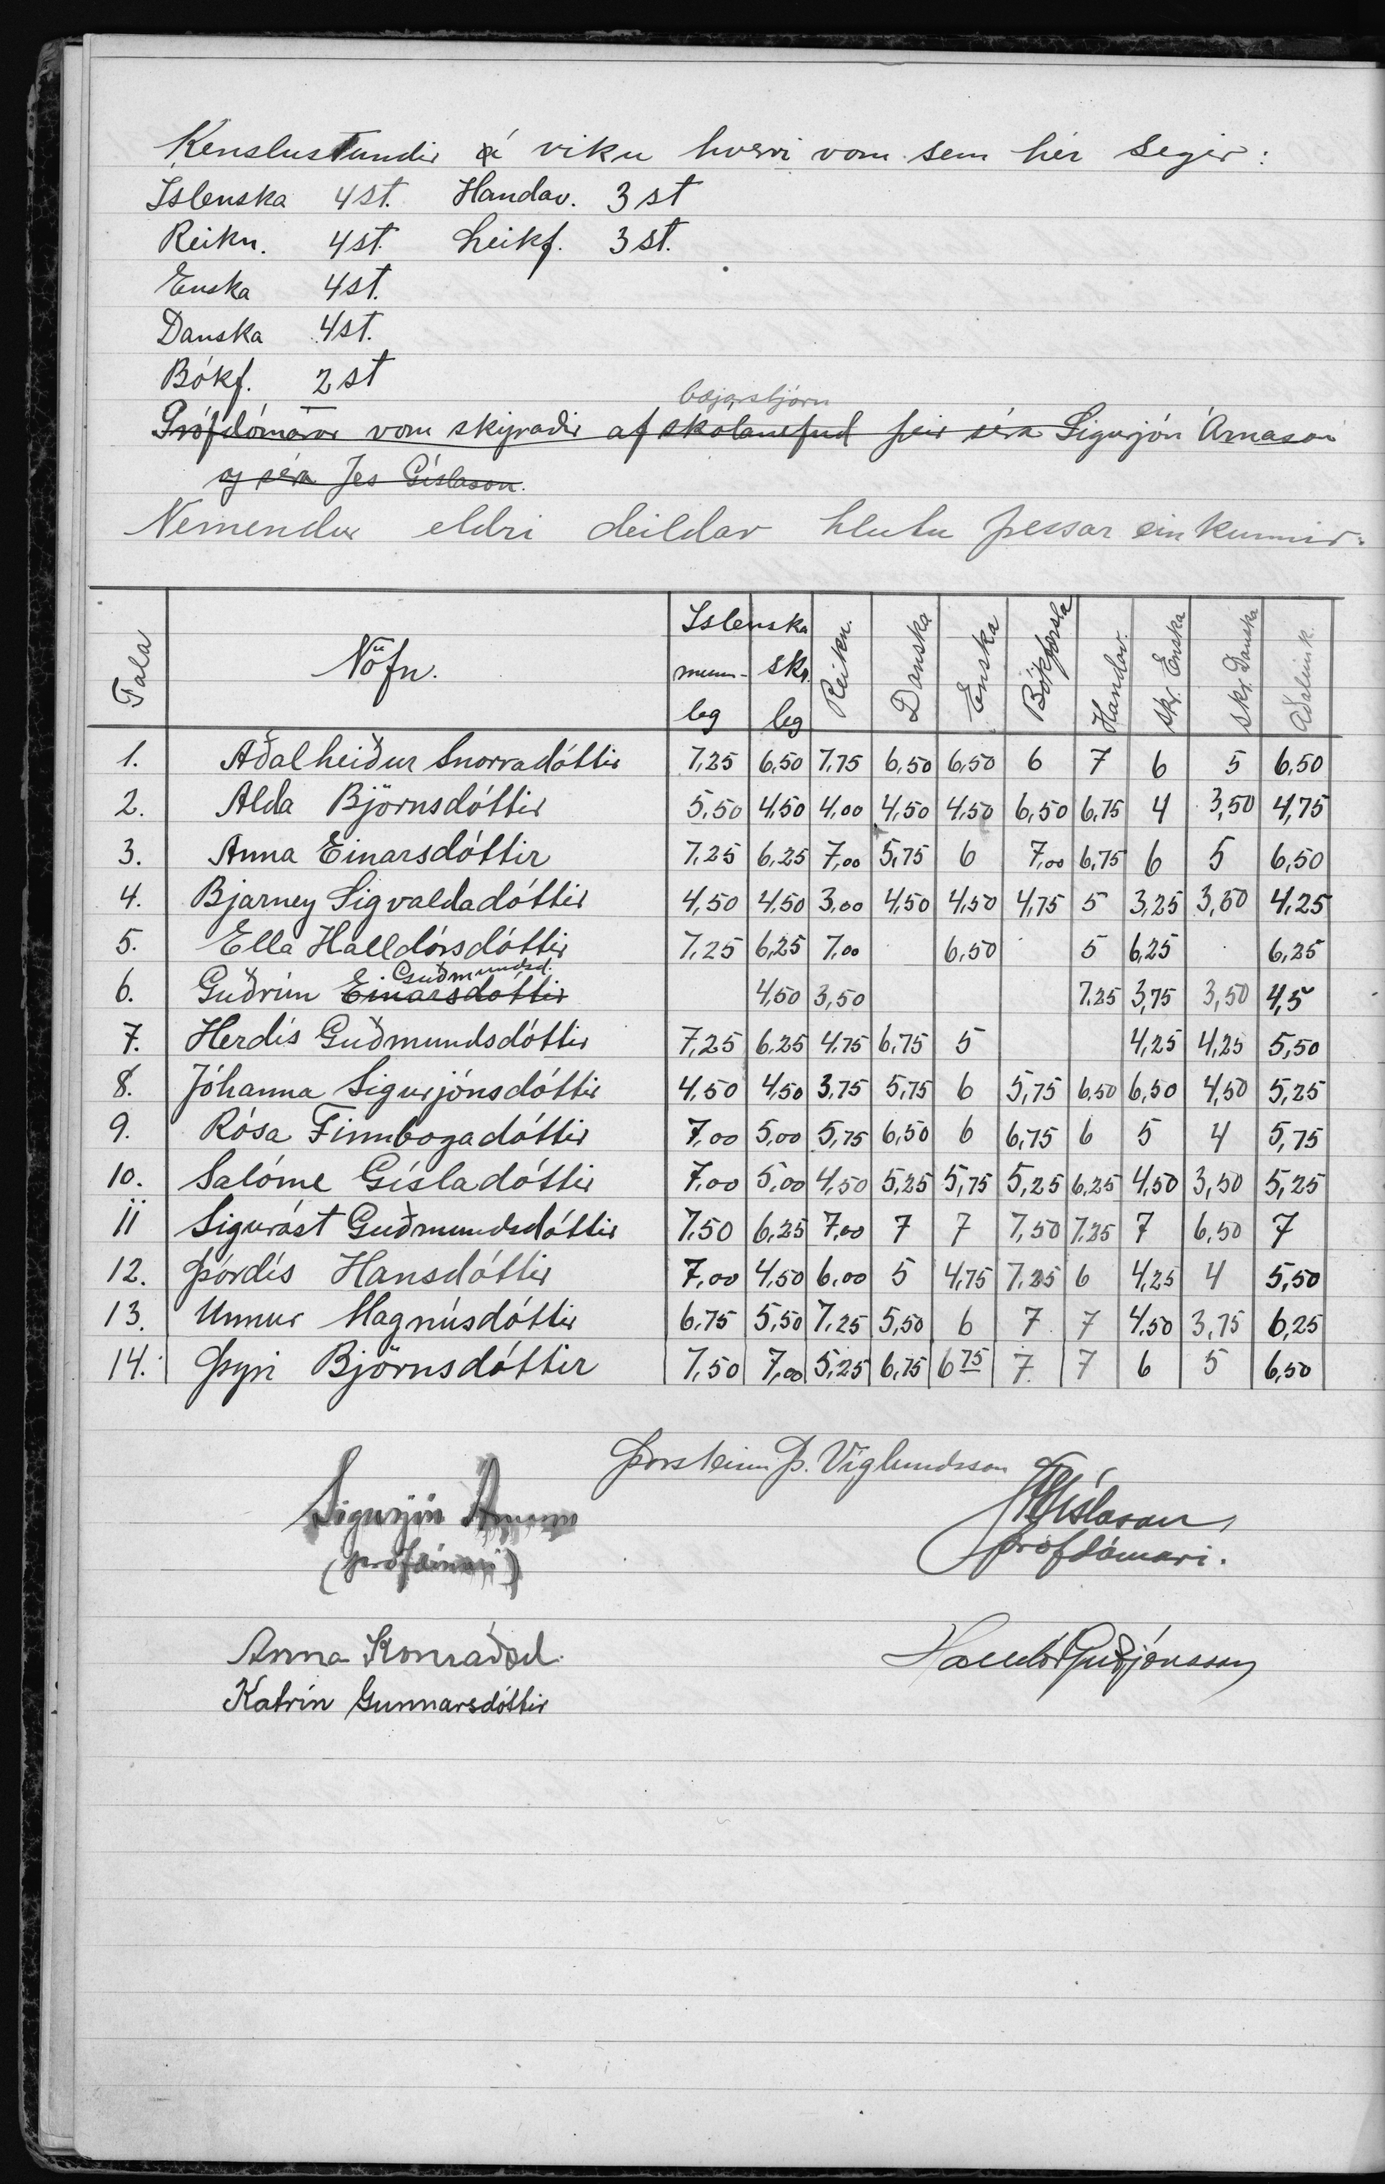 Kenslustundir á viku hverri vom sem hér segir:
Islenska 4 st. Handav. 3 st
Reikn. 4 st. Leikf. 3 st.
Enska 4 st.
Danska 4 st.
Bókf. 2 st
bæjarstjórn
Prófdómarar vom skipaðir af skolanefnd þeir séra Sigurjón Árnason
og séra Jes Gíslason.
Nemendur eldri deildar hlutu þessar einkunnir.
Tala Nöfn. Islenska munn-leg skr.leg Reikn. Danska Enska Bókfærsla Handav. Skr. Enska Skr. Danska Aðaleink.
1. Aðalheiður Snorradóttir 7,25 6,50 7,75 6,50 6,50 6 7 6 5 6,50
2. Alda Björnsdóttir 5,50 4,50 4,00 4,50 4,50 6,50 6,75 4 3,50 4,75
3. Anna Einarsdóttir 7,25 6,25 7,00 5,75 6 7,00 6,75 6 5 6,50
4. Bjarney Sigvaldadóttir 4,50 4,50 3,00 4,50 4,50 4,75 5 3,25 3,50 4,25
5. Ella Halldórsdóttir 7,25 6,25 7,00 6,50 5 6,25 6,25
Guðmundsd.
6. Guðrún Einarsdóttir 4,50 3,50 7,25 3,75 3,50 4,5
7. Herdís Guðmundsdóttir 7,25 6,25 4,75 6,75 5 4,25 4,25 5,50
8. Jóhanna Sigurjónsdóttir 4,50 4,50 3,75 5,75 6 5,75 6,50 6,50 4,50 5,25
9. Rósa Finnbogadóttir 7,00 5,00 5,75 6,50 6 6,75 6 5 4 5,75
10. Salóme Gísladóttir 7,00 5,00 4,50 5,25 5,75 5,25 6,25 4,50 3,50 5,25
11 Sigurást Guðmundsdóttir 7,50 6,25 7,00 7 7 7,50 7,25 7 6,50 7
12. Þórdís Hansdóttir 7,00 4,50 6,00 5 4,75 7,25 6 4,25 4 5,50
13. Unnur Magnúsdóttir 6,75 5,50 7,25 5,50 6 7 7 4,50 3,75 6,25
14. Þyri Björnsdóttir 7,50 7,00 5,25 6,75 6 75 7. 7 6 5 6,50
Þorsteinn Þ. Víglundsson
Sigurjón Árnason
(prófdómari)
JGíslason,
prófdómari.
Anna Konráðsd.
Halldór Guðjónsson
Katrín Gunnarsdóttir